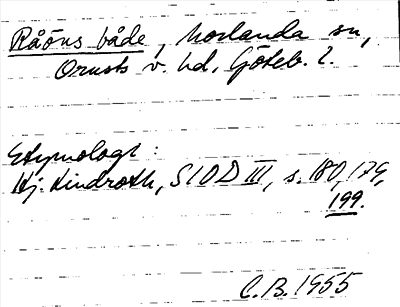 Råöns både, Morlanda sn,
Orusts v. hd, Göteb. l.
Etymologi:
Hj. Lindroth, SIOD III, s. 180, 179,
199.
C.B. 1955